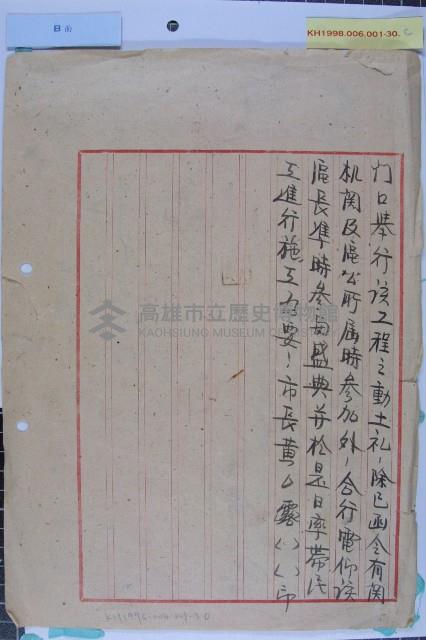 B面
KH1998.006.001-30. C
门口举行该工程之動土礼，除已函令有関
机関及區公所届時参加外，合行電仰该
區長準時参由盛典并於是日率帶民
工進行施工为要！市長黄厶露（）（）印
高雄市立歷史博物館
KAOHSIUNG MUSEUM OF HISTORY
KH1998.006.001-30